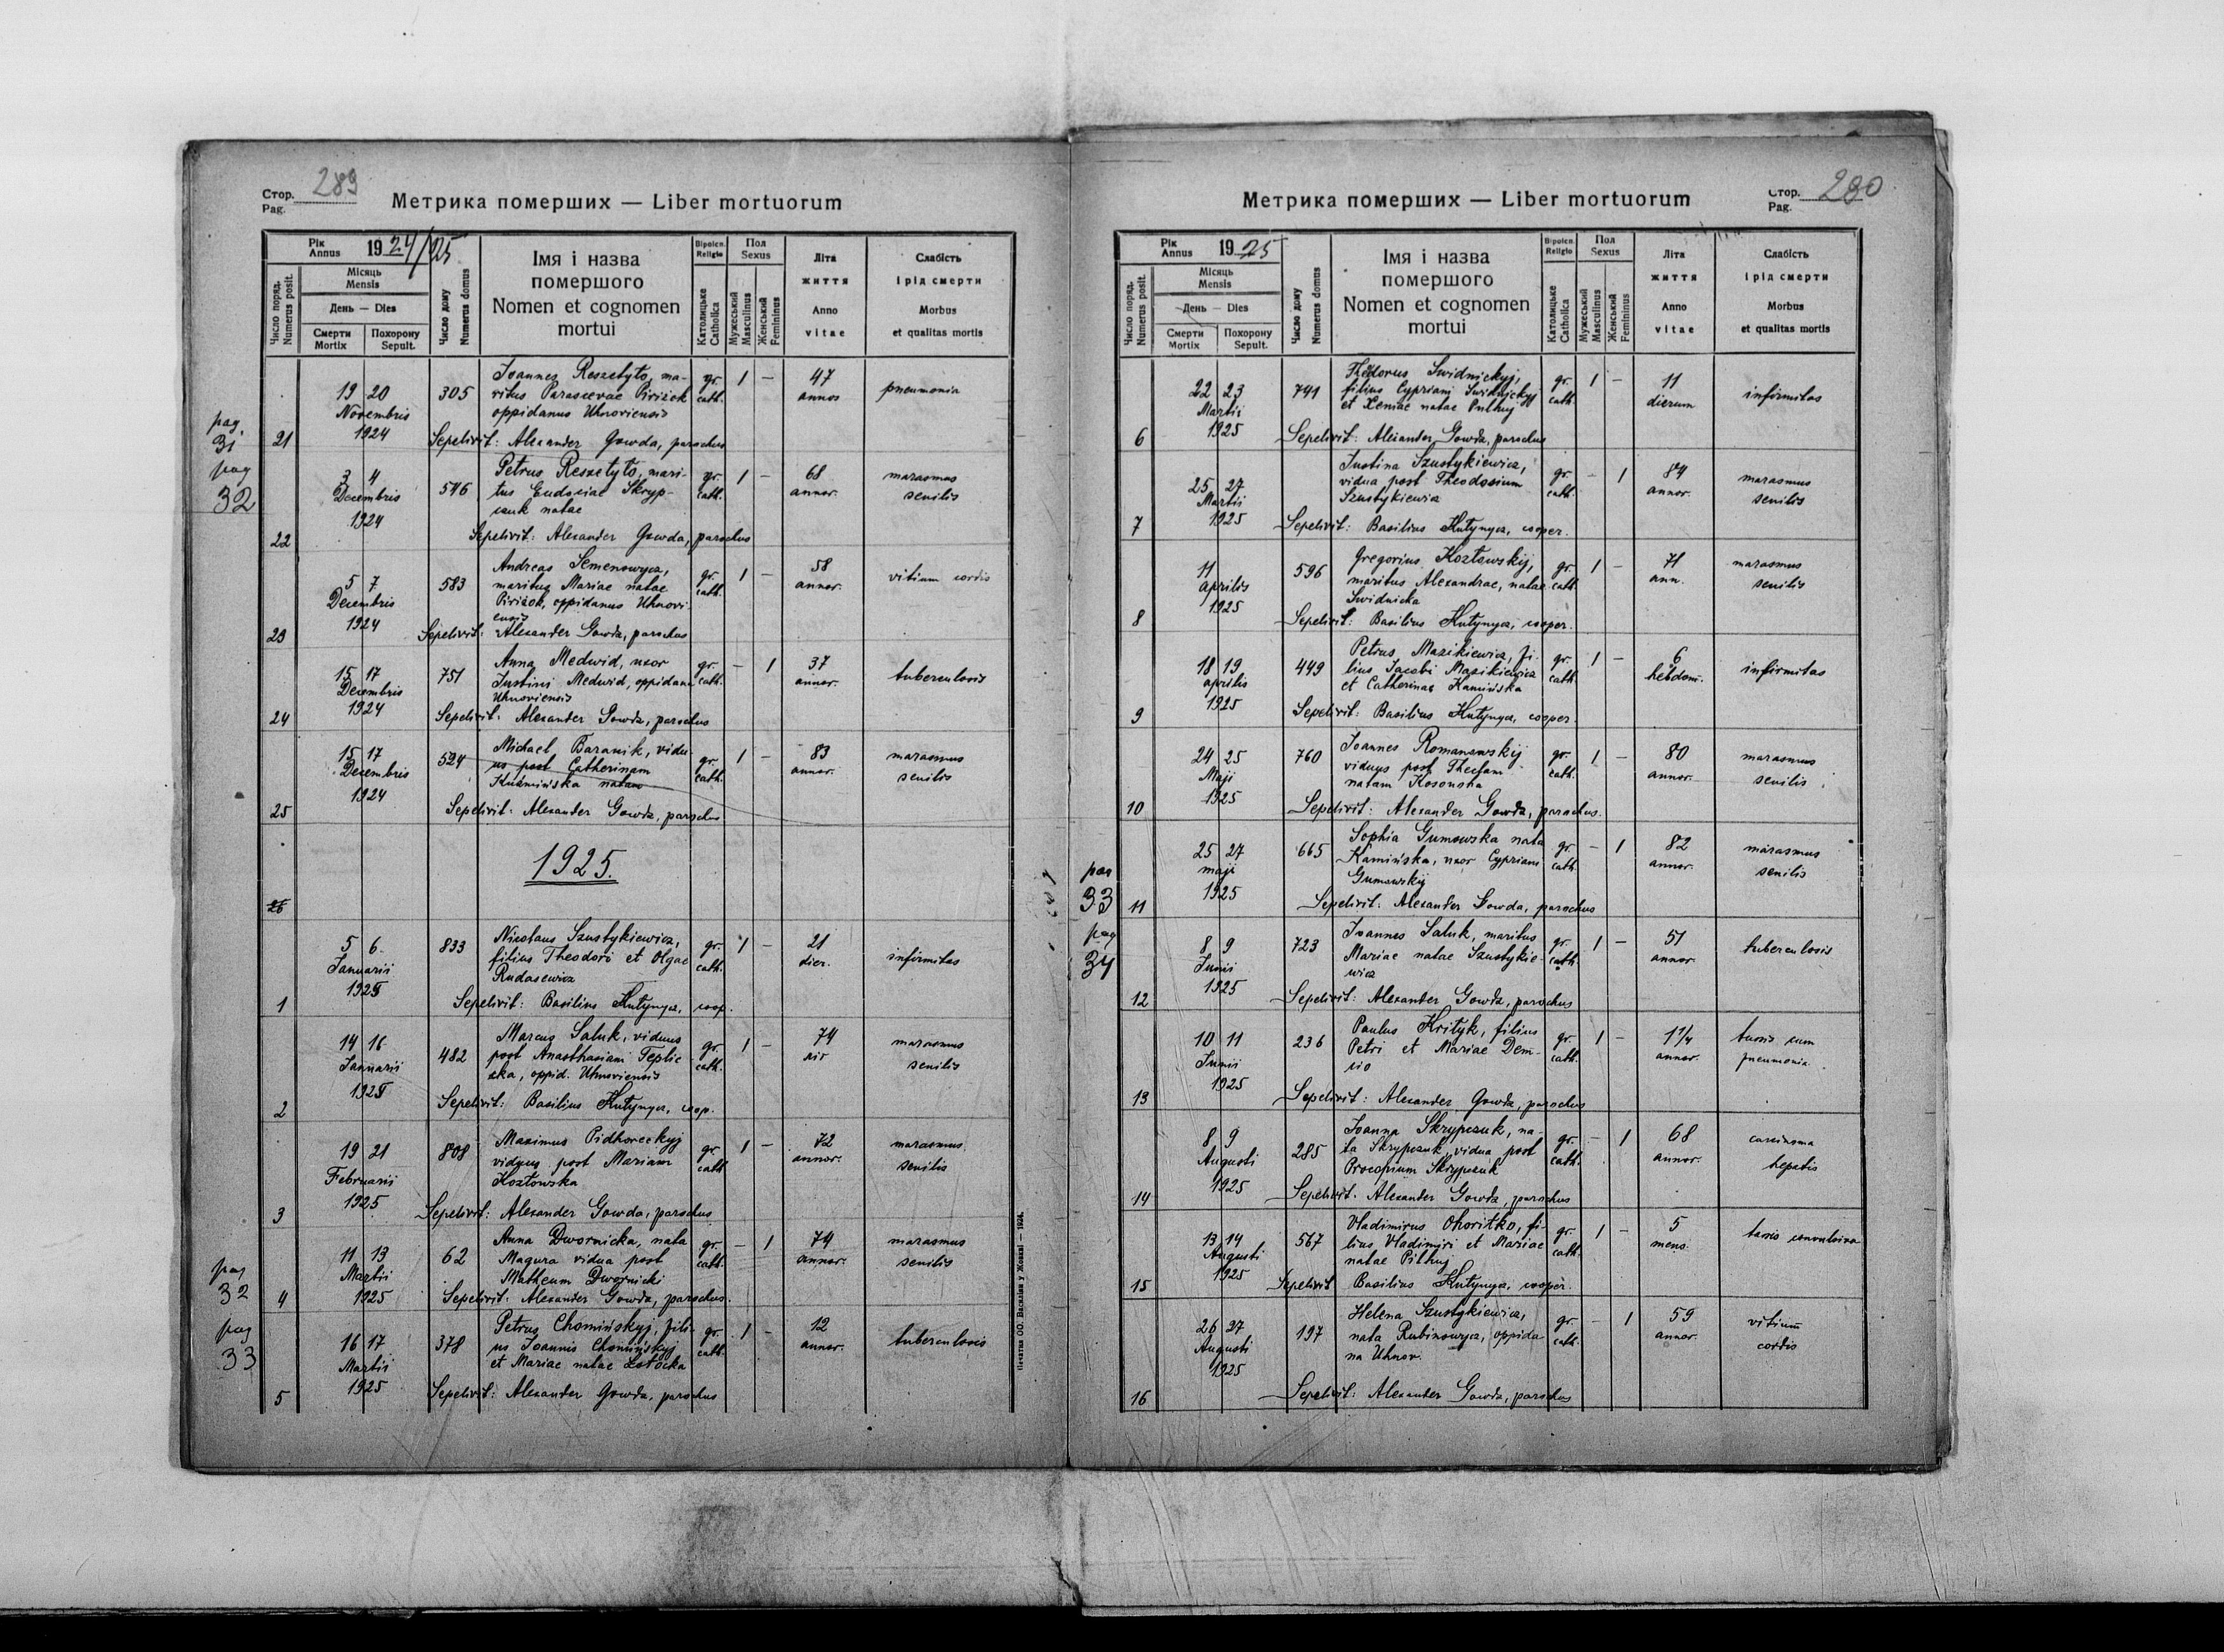 Стор. 289
Pag.
Метрика померших — Liber mortuorum
Рік
Annus
1924/25
Місяць
Mensis
День — Dies
Смерти
Mortix
Похорону
Sepult.
Число поряд.
Numerus posit.
Число дому
Numerus domus
Імя і назва
помершого
Nomen et cognomen
mortui
Віроісп.
Religio
Католицьке
Catholica
Пол
Sexus
Мужеський
Masculinus
Женський
Femininus
Літа
життя
Anno
vitae
Слабість
і рід смерти
Morbus
et qualitas mortis
pag.
31
21
19 20
Novembris
1924
305
Joannes Reszetyło, ma-
ritus Parascevae Pirižok
oppidanus Uhnoviensis
gr.
cath.
1 –
47
annos
pneumonia
Sepelivit: Alexander Gowda, parochus
pag
32
22
3 4
Decembris
1924
546
Petrus Reszetyło, mari-
tus Eudociae Skryp-
czuk natae
gr.
cath.
1 –
68
annor.
marasmus
senilis
Sepelivit: Alexander Gowda, parochus
23
5 7
Decembris
1924
583
Andreas Semenowycz,
maritus Mariae natae
Pirižok, oppidanus Uhnovi
ensis
gr.
cath.
1 –
58
annor.
vitium cordis
Sepelivit: Alexander Gowda, parochus
24
15 17
Decembris
1924
751
Anna Medwid, uxor
Justini Medwid, oppidana
Uhnoviensis
gr.
cath.
– 1
37
annor.
tuberculosis
Sepelivit: Alexander Gowda, parochus
25
15 17
Decembris
1924
524
Michael Baranik, vidu-
us post Catherinam
Kuźmińska natam
gr.
cath.
1 –
83
annor.
marasmus
senilis
Sepelivit: Alexander Gowda, parochus
26
1925.
1
5 6
Januarii
1925
833
Nicolaus Szustykiewicz,
filius Theodori et Olgae
Rudasewicz
gr.
cath.
1 –
21
dier.
infirmitas
Sepelivit: Basilius Kutynya, coop.
2
14 16
Januarii
1925
482
Marcus Saluk, viduus
post Anasthasiam Teplic
ska, oppid. Uhnoviensis
gr.
cath.
1 –
74
marasmus
senilis
Sepelivit: Basilius Kutynya, coop.
3
19 21
Februarii
1925
808
Maximus Pidhoreckyj
viduus post Mariam
Kozłowska
gr.
cath.
1 –
72
annor.
marasmus
senilis
Sepelivit: Alexander Gowda, parochus
pag
32
4
11 13
Martii
1925
62
Anna Dwornicka, nata
Magura vidua post
Matheum Dwornicki
gr.
cath.
– 1
74
annor.
marasmus
senilis
Sepelivit: Alexander Gowda, parochus.
pag
33
5
16 17
Martii
1925
378
Petrus Chomińskyj, fili-
us Joannis Chomińskyj
et Mariae natae Łotocka
gr.
cath.
1 –
12
annor.
tuberculosis
Sepelivit: Alexander Gowda, parochus
Печатня ОО. Василіян у Жовкві — 1924.
Метрика померших — Liber mortuorum
Стор. 280
Pag.
Рік
Annus
1925
Місяць
Mensis
День — Dies
Смерти
Mortix
Похорону
Sepult.
Число поряд.
Numerus posit.
Число дому
Numerus domus
Імя і назва
помершого
Nomen et cognomen
mortui
Віроісп.
Religio
Католицьке
Catholica
Пол
Sexus
Мужеський
Masculinus
Женський
Femininus
Літа
життя
Anno
vitae
Слабість
і рід смерти
Morbus
et qualitas mortis
6
22 23
Martii
1925
741
Thedorus Swidnickyj,
filius Cypriani Swidnickyj
et Xeniae natae
gr.
cath.
1 –
11
dierum
infirmitas
Sepelivit: Alexander Gowda, parochus
7
25 27
Martii
1925
Justina Szustykiewicz,
vidua post Theodosium
Szustykiewicz
gr.
cath.
– 1
84
annor.
marasmus
senilis
Sepelivit: Basilius Kutynya, cooper.
8
11
aprilis
1925
596
Gregorius Kozłowskij,
maritus Alexandrae, natae
Swidnicka
gr.
cath.
1 –
71
ann.
marasmus
senilis
Sepelivit: Basilius Kutynya, cooper.
9
18 19
aprilis
1925
449
Petrus Mazikiewicz, fi-
lius Jacobi Mazikiewicz
et Catherinae Kamińska
gr.
cath.
1 –
6
hebdom.
infirmitas
Sepelivit: Basilius Kutynya, cooper
10
24 25
Maji
1925
760
Joannes Romanowskij
viduus post Theclam
natam Kosonska
gr.
cath.
1 –
80
annor.
marasmus
senilis
Sepelivit: Alexander Gowda, parochus.
pag
33
11
25 27
maji
1925
665
Sophia Gumowska nata
Kamińska, uxor Cypriani
Gumowskij
gr.
cath.
– 1
82
annor.
marasmus
senilis
Sepelivit: Alexander Gowda, parochus
pag
34
12
8 9
Junii
1925
723
Joannes Saluk, maritus
Mariae natae Szustykie-
wicz
gr.
cath.
1 –
51
annor.
tuberculosis
Sepelivit: Alexander Gowda, parochus
13
10 11
Junii
1925
236
Paulus Krityk, filius
Petri et Mariae Dem-
cio
gr.
cath.
1 –
1 1/4
annor.
tussis cum
pneumonia
Sepelivit: Alexander Gowda, parochus
14
8 9
Augusti
1925
285
Joanna Skrypczuk, na-
ta Skrypczuk, vidua post
Procopium Skrypczuk
gr.
cath.
– 1
68
annor.
carcinoma
hepatis
Sepelivit: Alexander Gowda, parochus
15
13 14
Augusti
1925
567
Vladimirus Ohoritko, fi-
lius Vladimiri et Mariae
natae Pilthuj
gr.
cath.
1 –
5
mens.
tussis convulsiva
Sepelivit Basilius Kutynya, cooper.
16
26 27
Augusti
1925
197
Helena Szustykiewicz,
nata Rubinowycz, oppida
na Uhnov.
gr.
cath.
– 1
59
annor.
vitium
cordis
Sepelivit: Alexander Gowda, parochus